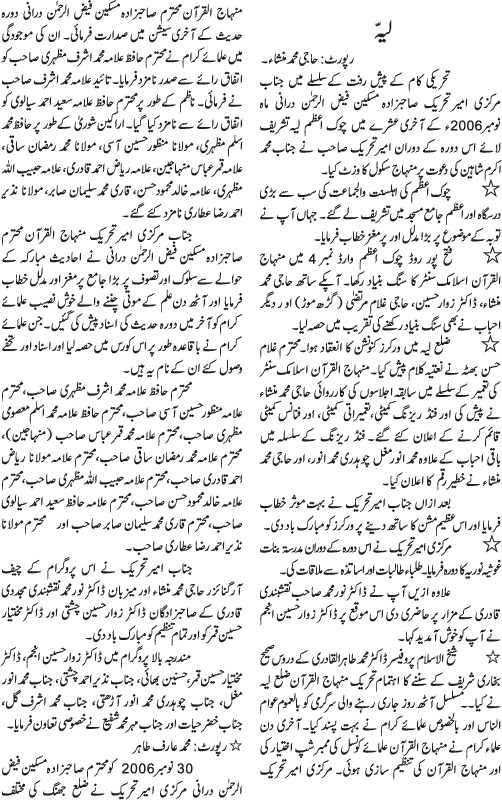 لیہّ
رپورٹ: حاجی محمد منشاء۔
تحریکی کام کے پیش رفت کے سلسلے میں جناب
مرکزی امیر تحریک صاحبزادہ مسکین فیض الرحمٰن درانی ماہ
نومبر 2006ء کے آخری عشرے میں چوک اعظم لیہ تشریف
لائے اس دورہ کے دوران امیر تحریک صاحب نے جناب محمد
اکرم شاہین کی دعوت پر منہاج سکول کا وزٹ کیا۔
☆ چوک اعظم کی اہلسنت والجماعت کی سب سے بڑی
درسگاہ اور اعظم جامع مسجد میں تشریف لے گئے۔ جہاں آپ نے
توبہ کے موضوع پر بڑا مدلل اور پرمغز خطاب فرمایا۔
☆ فتح پور روڈ چوک اعظم وارڈ نمبر 4 میں منہاج
القرآن اسلامک سنٹر کا سنگ بنیاد رکھا۔ آپکے ساتھ حاجی محمد
منشاء، ڈاکٹر زوار حسین، حاجی غلام مرتضٰی (گڑھ موڑ) اور دیگر
احباب نے بھی سنگ بنیاد رکھنے کی تقریب میں حصہ لیا۔
☆ ضلع لیہ میں ورکرز کنونشن کا انعقاد ہوا۔ محترم غلام
حسن بھٹہ نے نعتیہ کلام پیش کیا۔ منہاج القرآن اسلامک سنٹر
کی تعمیر کے سلسلے میں سابقہ اجلاسوں کی کارروائی حاجی محمد منشاء
نے پیش کی اور فنڈ ریزنگ کمیٹی، تعمیراتی کمیٹی، اور فنانس کمیٹی
قائم کرنے کے اعلان کئے گئے۔ فنڈ ریزنگ کے سلسلہ میں
باقی احباب کے علاوہ محمد انور مغل چوہدری محمد انور، اور حاجی محمد
منشاء نے خطیر رقم کا اعلان کیا۔
بعد ازاں جناب امیر تحریک نے بہت موثر خطاب
فرمایا اور اس عظیم مشن کا ساتھ دینے پر ورکرز کو مبارک باد دی۔
☆ مرکزی امیر تحریک نے اس دورہ کے دوران مدرسۃ بنات
غوثیہ نوریہ کا دورہ فرمایا۔ طلباء طالبات اور اساتذہ سے ملاقات کی۔
علاوہ ازیں آپ نے ڈاکٹر نور محمد صاحب نقشبندی
قادری کے مزار پر حاضری دی اس موقع پر ڈاکٹر زوار حسین انجم
نے آپ کو خوش آمدید کہا۔
☆ شیخ الاسلام پروفیسر ڈاکٹر محمد طاہر القادری کے دروس صحیح
بخاری شریف کے سننے کا اہتمام تحریک منہاج القرآن ضلع لیہ
نے کیا۔۔ مسلسل آٹھ روز جاری رہنے والی سرگرمی کو بالعموم عوام
الناس اور بالخصوص علمائے کرام نے بہت پسند کیا۔ آخری دن
علماء کرام نے منہاج القرآن علمائے کونسل کی ممبر شپ اختیار کی
اور منہاج القرآن کی تنظیم سازی ہوئی۔ مرکزی امیر تحریک
منہاج القرآن محترم صاحبزادہ مسکین فیض الرحمٰن درانی دورہ
حدیث کے آخری سیشن میں صدارت فرمائی۔ ان کی موجودگی
میں علمائے کرام نے محترم حافظ علامہ محمد اشرف مظہری صاحب کو
اتفاق رائے سے صدر نامزد فرمایا۔ تائید علامہ محمد اشرف صاحب
نے فرمائی۔ ناظم کے طور پر محترم حافظ علامہ سعید احمد سیالوی کو
اتفاق رائے سے نامزد کیا گیا۔ اراکین شوریٰ کے طور پر حافظ محمد
اسلم مظہری، مولانا منظور حسین آسی، مولانا محمد رمضان ساقی،
علامہ قمر عباس منہاجین، علامہ ریاض احمد قادری، علامہ حبیب اللہ
مظہری، علامہ خالد محمود حسن، قاری محمد سلیمان صابر، مولانا نذیر
احمد رضا عطاری نامزد کئے گئے۔
جناب مرکزی امیر تحریک منہاج القرآن محترم
صاحبزادہ مسکین فیض الرحمٰن درانی نے احادیث مبارکہ کے
حوالے سے سلوک اور تصوف پر بڑا جامع پرمغز اور مدلل خطاب
فرمایا اور آٹھ دن علم کے موتی چننے والے خوش نصیب علمائے
کرام کو آخر میں دورہ حدیث کی اسناد پیش کی گئیں۔ جن علمائے
کرام نے باقاعدہ طور پر اس کورس میں حصہ لیا اور اسناد اور تحفے
وصول کئے ان کے نام یہ ہیں۔
محترم حافظ علامہ محمد اشرف مظہری صاحب، محترم
علامہ منظور حسین آسی صاحب، محترم حافظ علامہ محمد اسلم معصومی
مظہری صاحب، محترم علامہ محمد قمر عباس صاحب (منہاجین)،
محترم علامہ محمد رمضان ساقی صاحب، محترم علامہ مولانا ریاض
احمد قادری صاحب، محترم علامہ حبیب اللہ مظہری صاحب، محترم
علامہ خالد محمود حسن صاحب، محترم علامہ حافظ سعید احمد سیالوی
صاحب، محترم قاری محمد سلیمان صابر صاحب اور محترم مولانا
نذیر احمد رضا عطاری صاحب۔
جناب امیر تحریک نے اس پروگرام کے چیف
آرگنائزر حاجی محمد منشاء اور میزبان ڈاکٹر نور محمد نقشبندی مجددی
قادری کے صاحبزادگان ڈاکٹر زوار حسین چشتی اور ڈاکٹر مختیار
حسین قمر کو اور تمام تنظیم کو مبارک باد دی۔
مندرجہ بالا پروگرام میں ڈاکٹر زوار حسین انجم، ڈاکٹر
مختیار حسین قمر، حسنین بھائی، جناب نذیر احمد چشتی، جناب محمد انور
مغل، جناب چوہدری محمد انور آڑھتی، جناب محمد اشرف گل،
جناب خضر حیات اور جناب مہر محمد شفیع نے خصوصی تعاون فرمایا۔
☆ رپورٹ: محمد عارف طاہر
30 نومبر 2006 کو محترم صاحبزادہ مسکین فیض
الرحمٰن درانی مرکزی امیر تحریک نے ضلع جھنگ کی مختلف